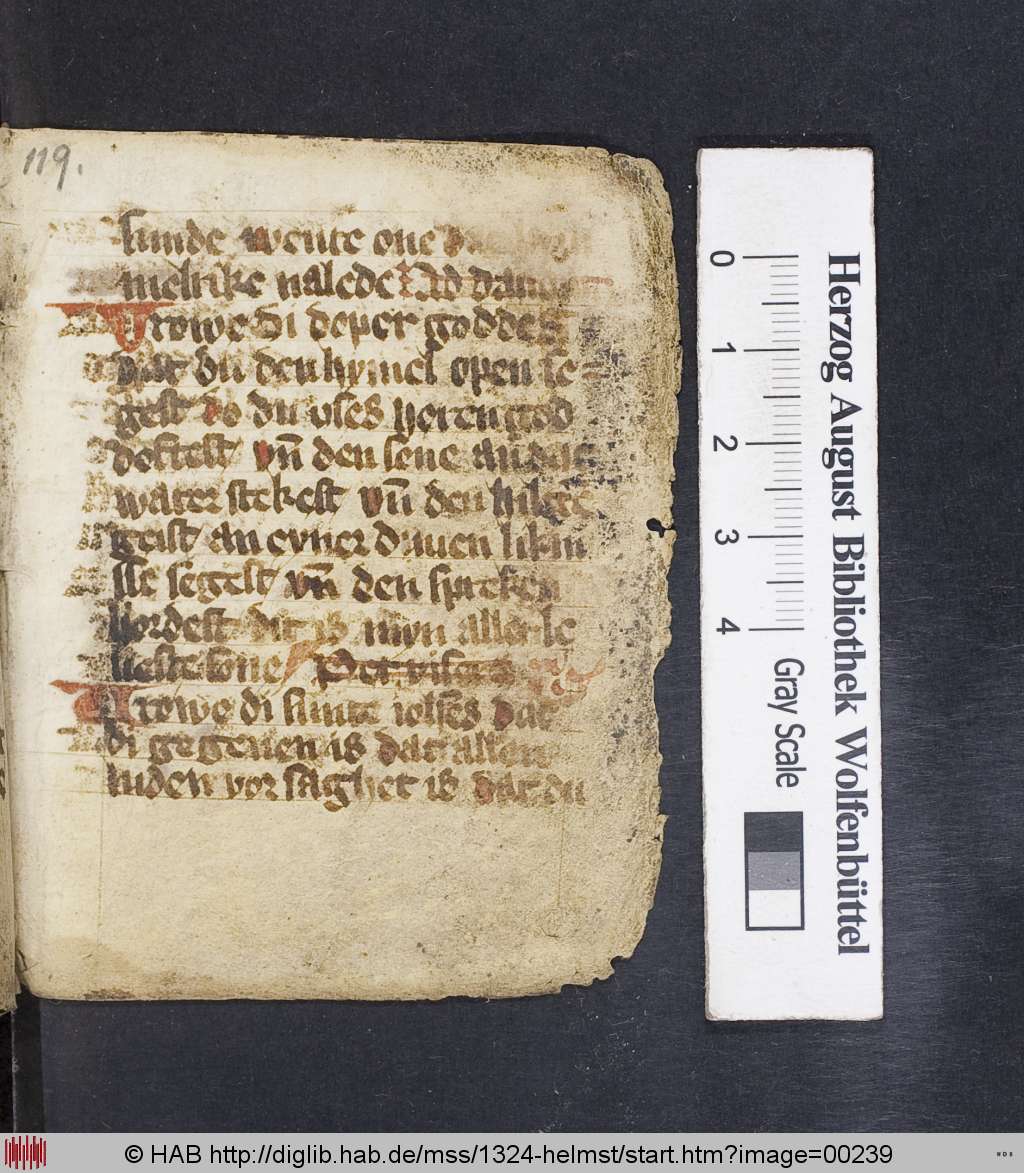 119.
sunde wente one dat
melrike nalede
Vrowe di deper goddes
dat du den hymel open se
gest do du vses heren god
doftest vn̄ den sone an dat
water stekest vn̄ den hilgē
geist an eyner duuen likni
sse segest vn̄ den spreken
hordest dit is myn allerle
ueste sone
Vrowe di sunte iohēs dat
di gegeuen is dat allen
luden vor saghet is dat du
0 1 2 3 4
Gray Scale
Herzog August Bibliothek Wolfenbüttel
© HAB http://diglib.hab.de/mss/1324-helmst/start.htm?image=00239